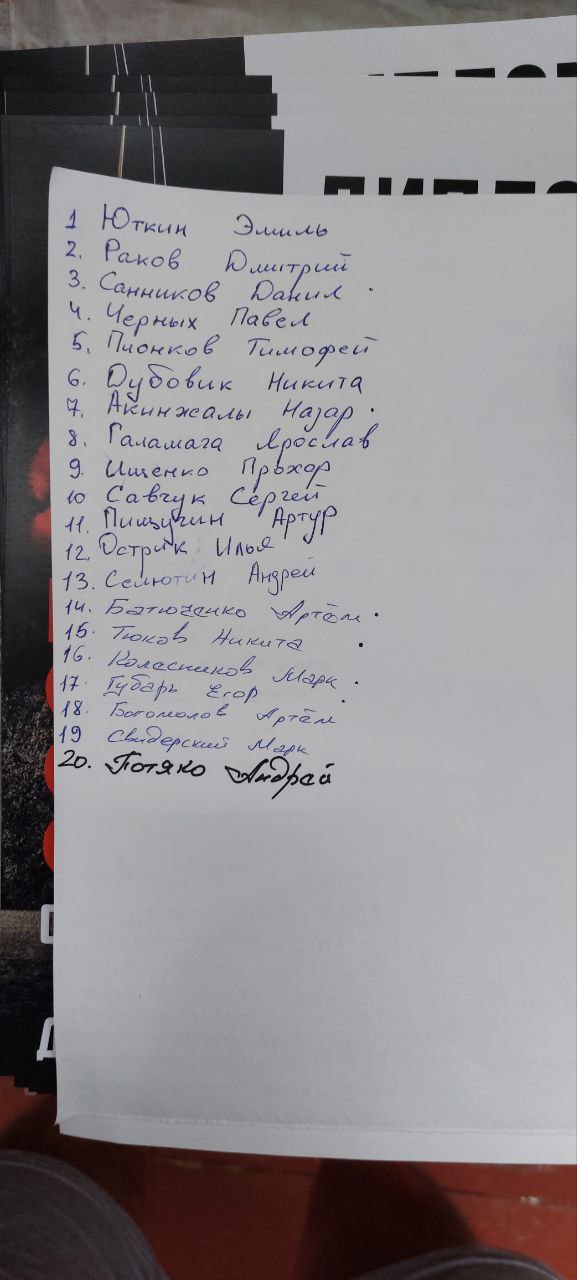 ДИПЛО
1 Юткин Эмиль
2. Раков Дмитрий
3. Санников Данил
4. Черных Павел
5. Плонков Тимофей
6. Дубовик Никита
7. Акинжалы Назар
8. Галамага Ярослав
9. Ищенко Прохор
10 Савчук Сергей
11. Пищугин Артур
12. Острик Илья
13. Селютин Андрей
14. Батюченко Артём
15. Тюков Никита
16. Колесников Марк
17. Губарь Егор
18. Богомолов Артём
19 Свидерский Марк
20. Потяко Андрей